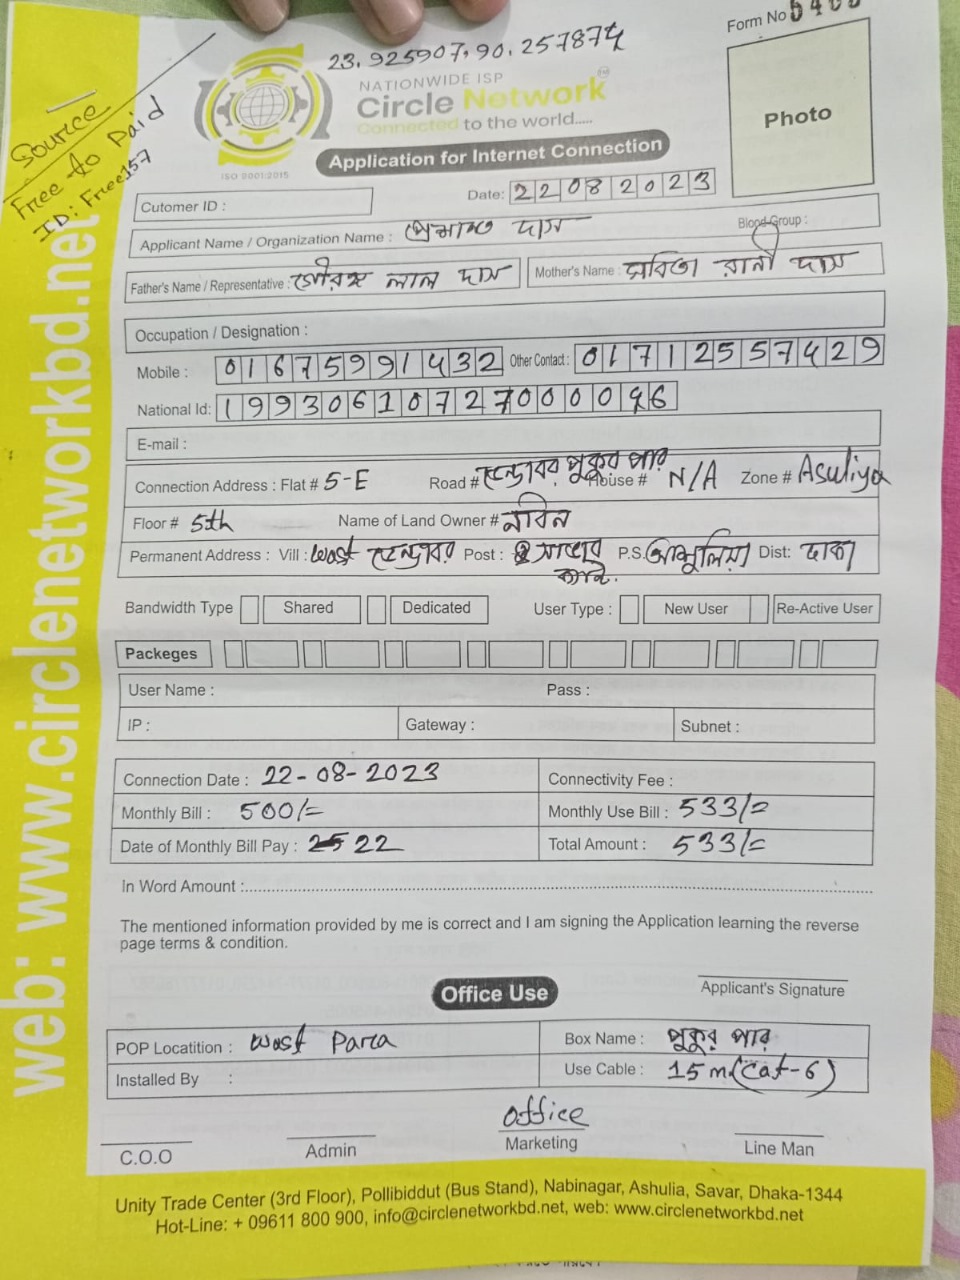 23.925907, 90.257874
Form No
Source
Free to Paid
ID: Free157
NATIONWIDE ISP
Circle Network
Connected to the world.....
ISO 9001:2015
Application for Internet Connection
Photo
Cutomer ID :
Date: 22082023
Applicant Name / Organization Name : দাস
Blood Group :
Father's Name / Representative : গৌরঙ্গ লাল দাস
Mother's Name : সবিতা রানী দাস
Occupation / Designation :
Mobile : 01675991432 Other Contact : 01712557429
National Id: 199306107270000
E-mail :
Connection Address : Flat # 5-E Road # পুকুর পার House # N/A Zone # Asuliya
Floor # 5th Name of Land Owner #
Permanent Address : Vill : West Post : P.S. আশুলিয়া Dist: ঢাকা
Bandwidth Type Shared Dedicated User Type : New User Re-Active User
Packeges
User Name : Pass :
IP : Gateway : Subnet :
Connection Date : 22-08-2023 Connectivity Fee :
Monthly Bill : 500/= Monthly Use Bill : 533/=
Date of Monthly Bill Pay : 22 Total Amount : 533/=
In Word Amount :
The mentioned information provided by me is correct and I am signing the Application learning the reverse
page terms & condition.
Office Use
Applicant's Signature
POP Locatition : West Para Box Name : পুকুর পার
Installed By : Use Cable : 15 m (Cat-6)
Office
C.O.O Admin Marketing Line Man
Unity Trade Center (3rd Floor), Pollibiddut (Bus Stand), Nabinagar, Ashulia, Savar, Dhaka-1344
Hot-Line: + 09611 800 900, info@circlenetworkbd.net, web: www.circlenetworkbd.net
web: www.circlenetworkbd.net